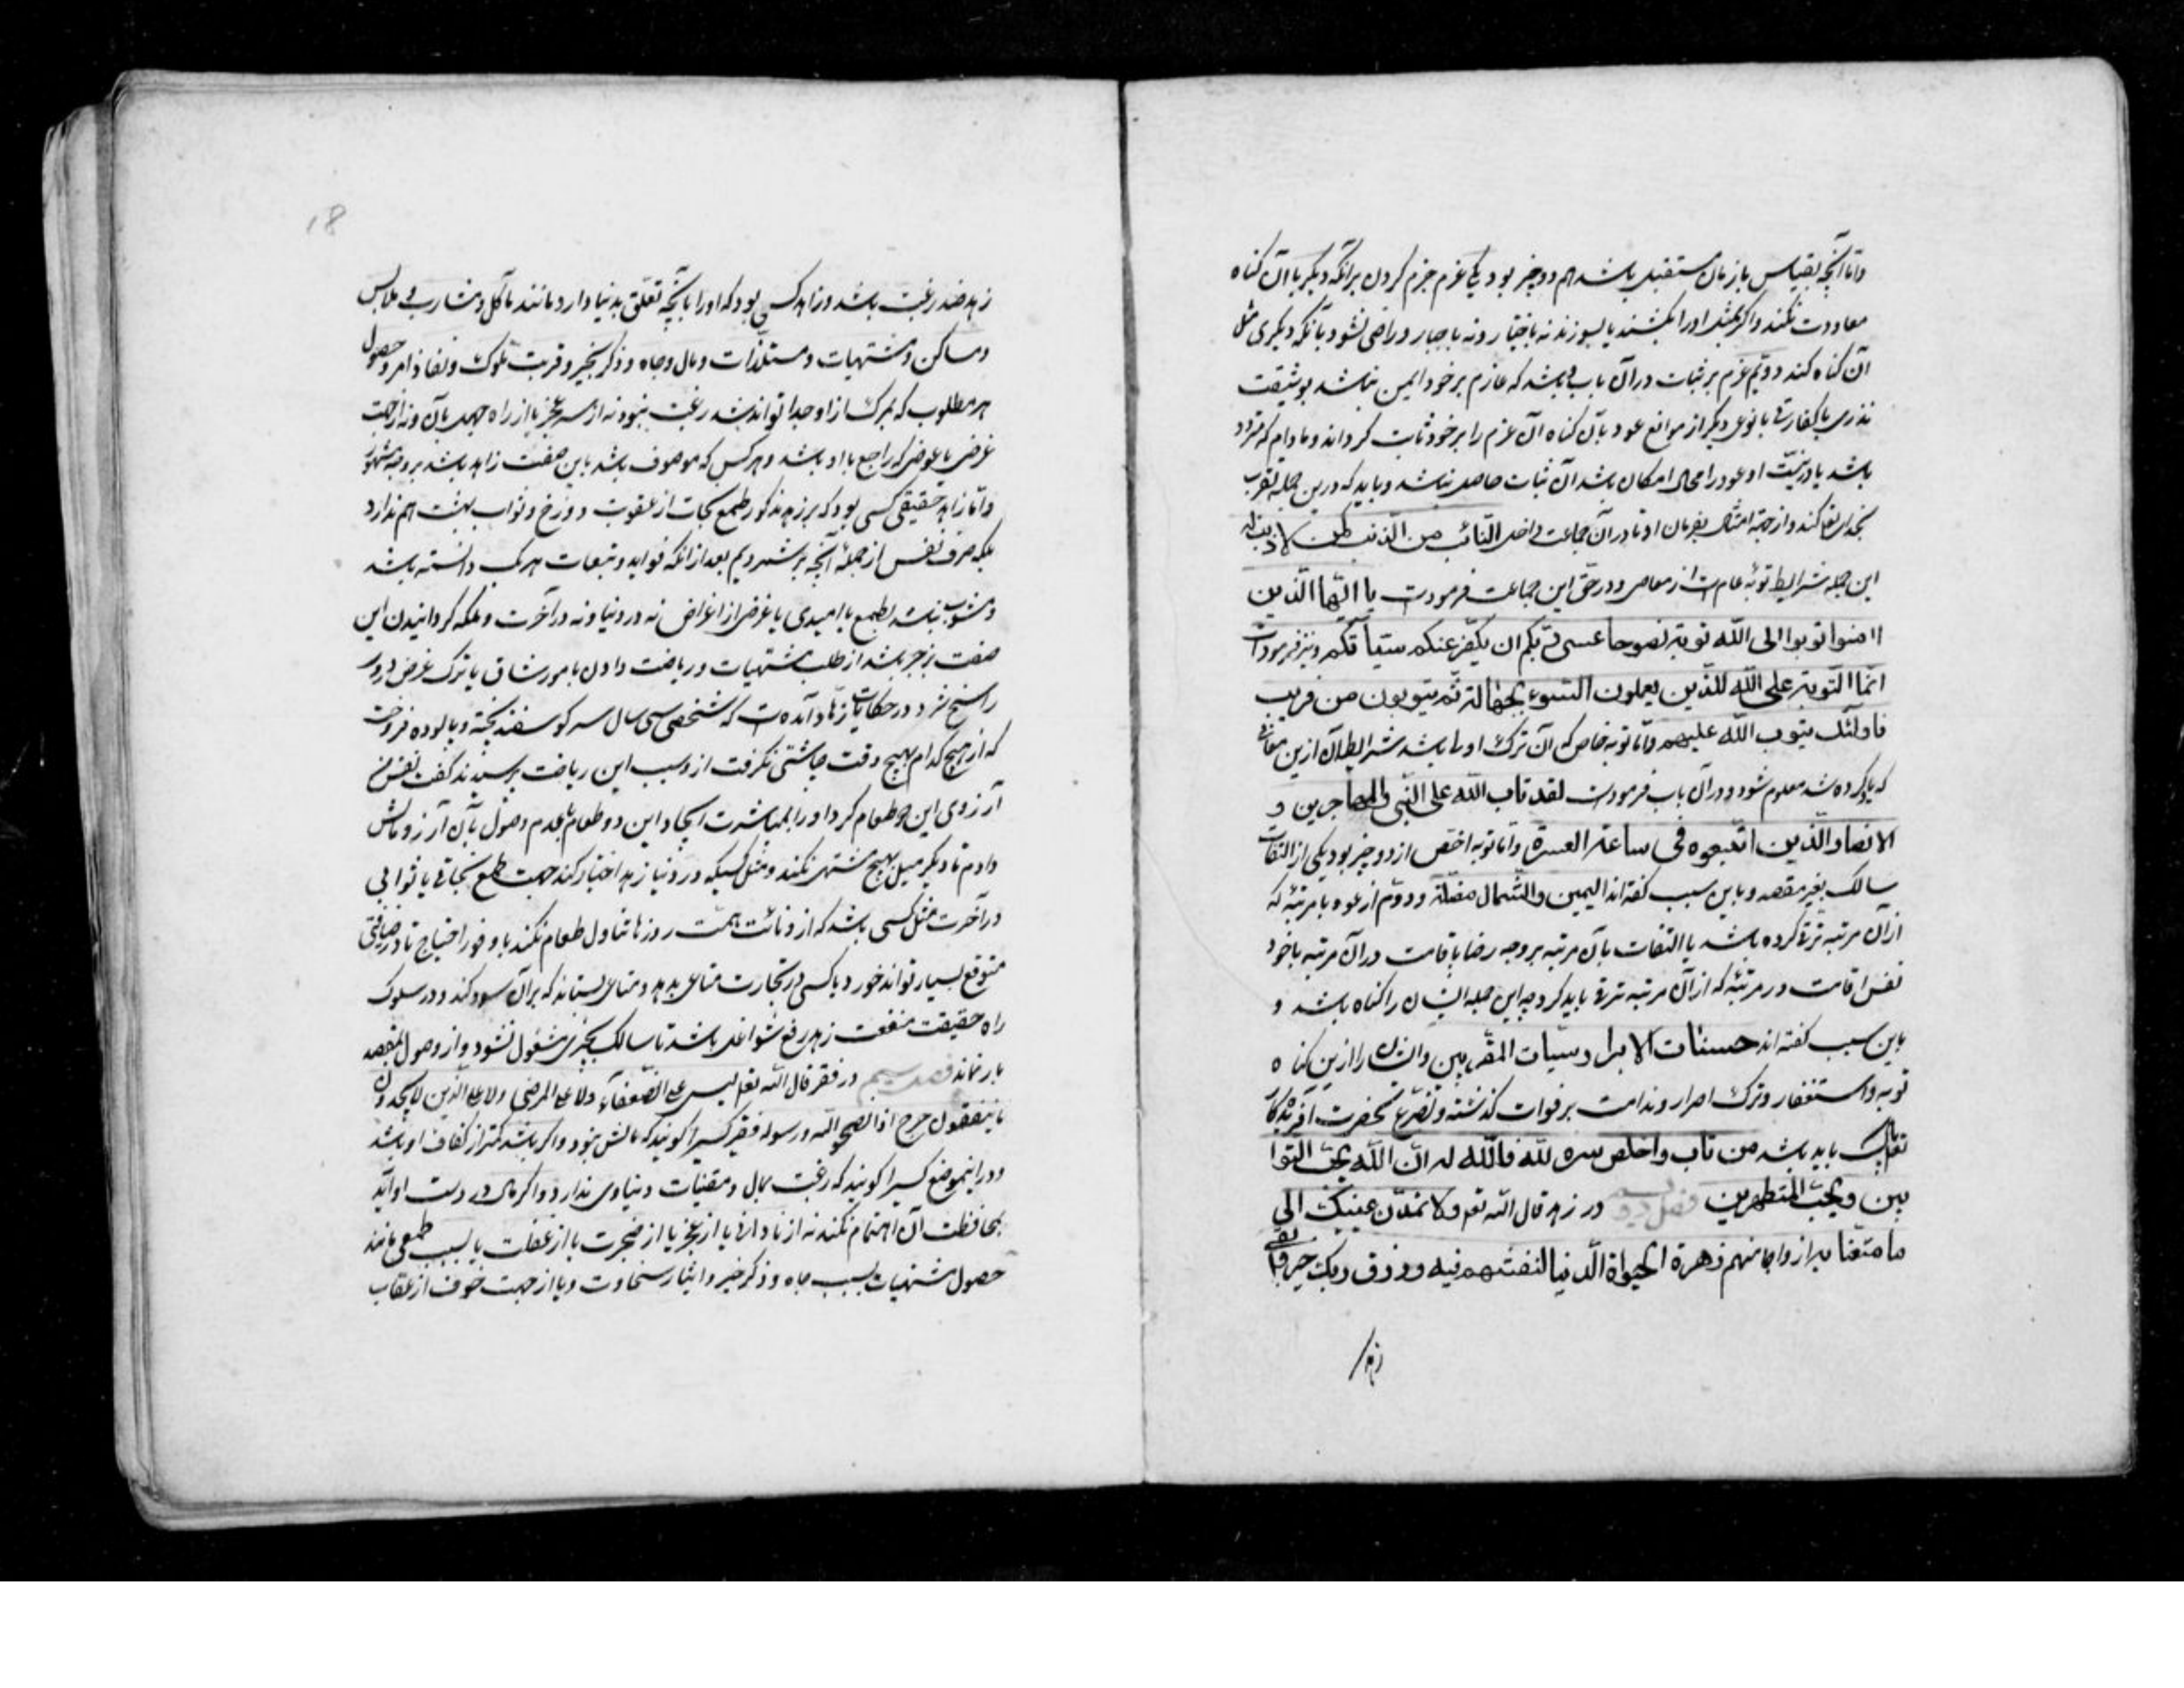 واما آنچه بقیاس بازمان مستقبل باشد هم دو چیز بود یکی عزم جزم کردن برانکه دیگر با آن کناه
معاودت نکند و اکر بمثل او را بکشند یا بسوزند نه باختیار و نه باجبار و راضی نشود بآنکه دیکری مثل
آن کناه کند دویم عزم بر ثبات در آن باب و باشد که عازم بر خود ایمن نباشد بوثیقت
نذری یا کفارتی یا نوعی دیگر از موانع عود بآن کناه آن عزم را بر خود ثابت کرداند و مادام که متردد
باشد یا در نیت او عود را مجال امکان باشد آن ثبات حاصل نباشد و باید که درین جمله تقرب
بخدای تعالی کند و از جهة امتثال بفرمان او تا در آن جماعت داخل التائب من الذنب کمن لا ذنب له
این جمله شرایط توبهٔ عام است از معاصی و در حق این جماعت فرموده است یا ایها الذین
اامنوا توبوا الی الله توبة نصوحا عسی ربکم ان یکفر عنکم سیئاتکم و نیز فرموده است
انما التوبة علی الله للذین یعملون السوء بجهالة ثم یتوبون من قریب
فاولئک یتوب الله علیهم و اما توبه خاص که آن ترک اولی باشد شرایط آن ازین معانی
که یاد کرده شد معلوم شود و در آن باب فرموده است لقد تاب الله علی النبی و المهاجرین و
الانصار الذین اتبعوه فی ساعة العسرة و اما توبه اخص از دو چیز بود یکی از التفات
سالک بغیر مقصد و باین سبب کفته اند الیمین و الشمال مضلة و دوم از عود با مرتبهٔ که
از آن مرتبه ترقی کرده باشد یا التفات بآن مرتبه بر وجه رضا باقامت در آن مرتبه باخود
نفس اقامت در مرتبهٔ که از آن مرتبه ترقی باید کرد چه این جمله ایشان را کناه باشد و
باین سبب کفته اند حسنات الابرار سیئات المقربین و ایشان را ازین کناه
توبه و استغفار و ترک اصرار و ندامت بر فوات کذشته و تضرع بحضرت آفریدکار
تعالی باید باشد من تاب و اخلص سره لله فالله له ان الله یحب التوا
بین و یحب المتطهرین فصل دویم در زهد قال الله تعه و لا تمدن عینیک الی
ما متعنا به ازواجا منهم زهرة الحیوة الدنیا لنفتنهم فیه و رزق ربک خیر و ابقی
زهد
18
زهد ضد رغبت باشد و زاهد کسی بود که او را بآنچه تعلق بدنیا دارد مانند مآکل و مشارب و ملابس
و مساکن و مشتهیات و مستلذات و مال و جاه و ذکر بخیر و قربت ملوک و نفاذ امر و حصول
هر مطلوب که بمرک از او جدا تواند شد رغبت نبود نه از سر عجز یا از راه جهل بآن و نه از جهت
غرضی یا عوضی که راجع با او باشد و هر کس که موصوف باشد باین صفت زاهد باشد بر وجه مشهور
و اما زاهد حقیقی کسی بود که بر زهد مذکور طمع نجات از عقوبت دوزخ و ثواب بهشت هم ندارد
بلکه صرف نفس از جملهٔ آنچه بر شمردیم بعد از انکه فواید و تبعات هر یک دانسته باشد
و مشوب نباشد بطمع یا امیدی یا غرضی از اغراض نه در دنیا و نه در آخرت و ملکه کردانیدن این
صفت بزجر باشد از طلب مشتهیات و ریاضت دادن بامور شاق یا ترک غرض در وی
راسخ شود در حکایات زهاد آمده است که شخصی سی سال سر کوسفند پخته و پالوده فروخت
که از هیچ کدام هیچ وقت چاشنی نکرفت از و سبب این ریاضت پرسیدند کفت نفس من
آرزوی این دو طعام کرد او را بمباشرت ایجاد این دو طعام با عدم وصول بآن آرزو مالش
دادم تا دیکر میل هیچ مشتهی نکند و مثل کسیکه در دنیا زهد اختیار کند جهت طمع نجاتی یا ثوابی
در آخرت مثل کسی باشد که از دنائت همت روزها تناول طعام نکند با وفور احتیاج تا در ضیافتی
متوقع بسیار تواند خورد یا کسی در تجارت متاعی بدهد و متاعی بستاند که بر آن سود کند و در سلوک
راه حقیقت منفعت زهد رفع شواغل باشد تا سالک بچیزی مشغول نشود و از وصول بمقصد
باز نماند فصل سیم در فقر قال الله تعه لیس علی الضعفآء ولا علی المرضی ولا علی الذین لا یجدون
ما ینفقون حرج اذا نصحوا لله و رسوله فقیر کسیرا کویند که مالش نبود و اکر باشد کمتر از کفاف او باشد
و در اینموضع کسیرا کویند که رغبت بمال و مقنیات دنیاوی ندارد و اکر مال در دست او آید
بمحافظت آن اهتمام نکند نه از نادانی یا از عجز یا از ضجرت یا از غفلت یا بسبب طمعی مانند
حصول مشتهیات بسبب جاه و ذکر خیر و ایثار سخاوت و یا از جهت خوف از عقاب